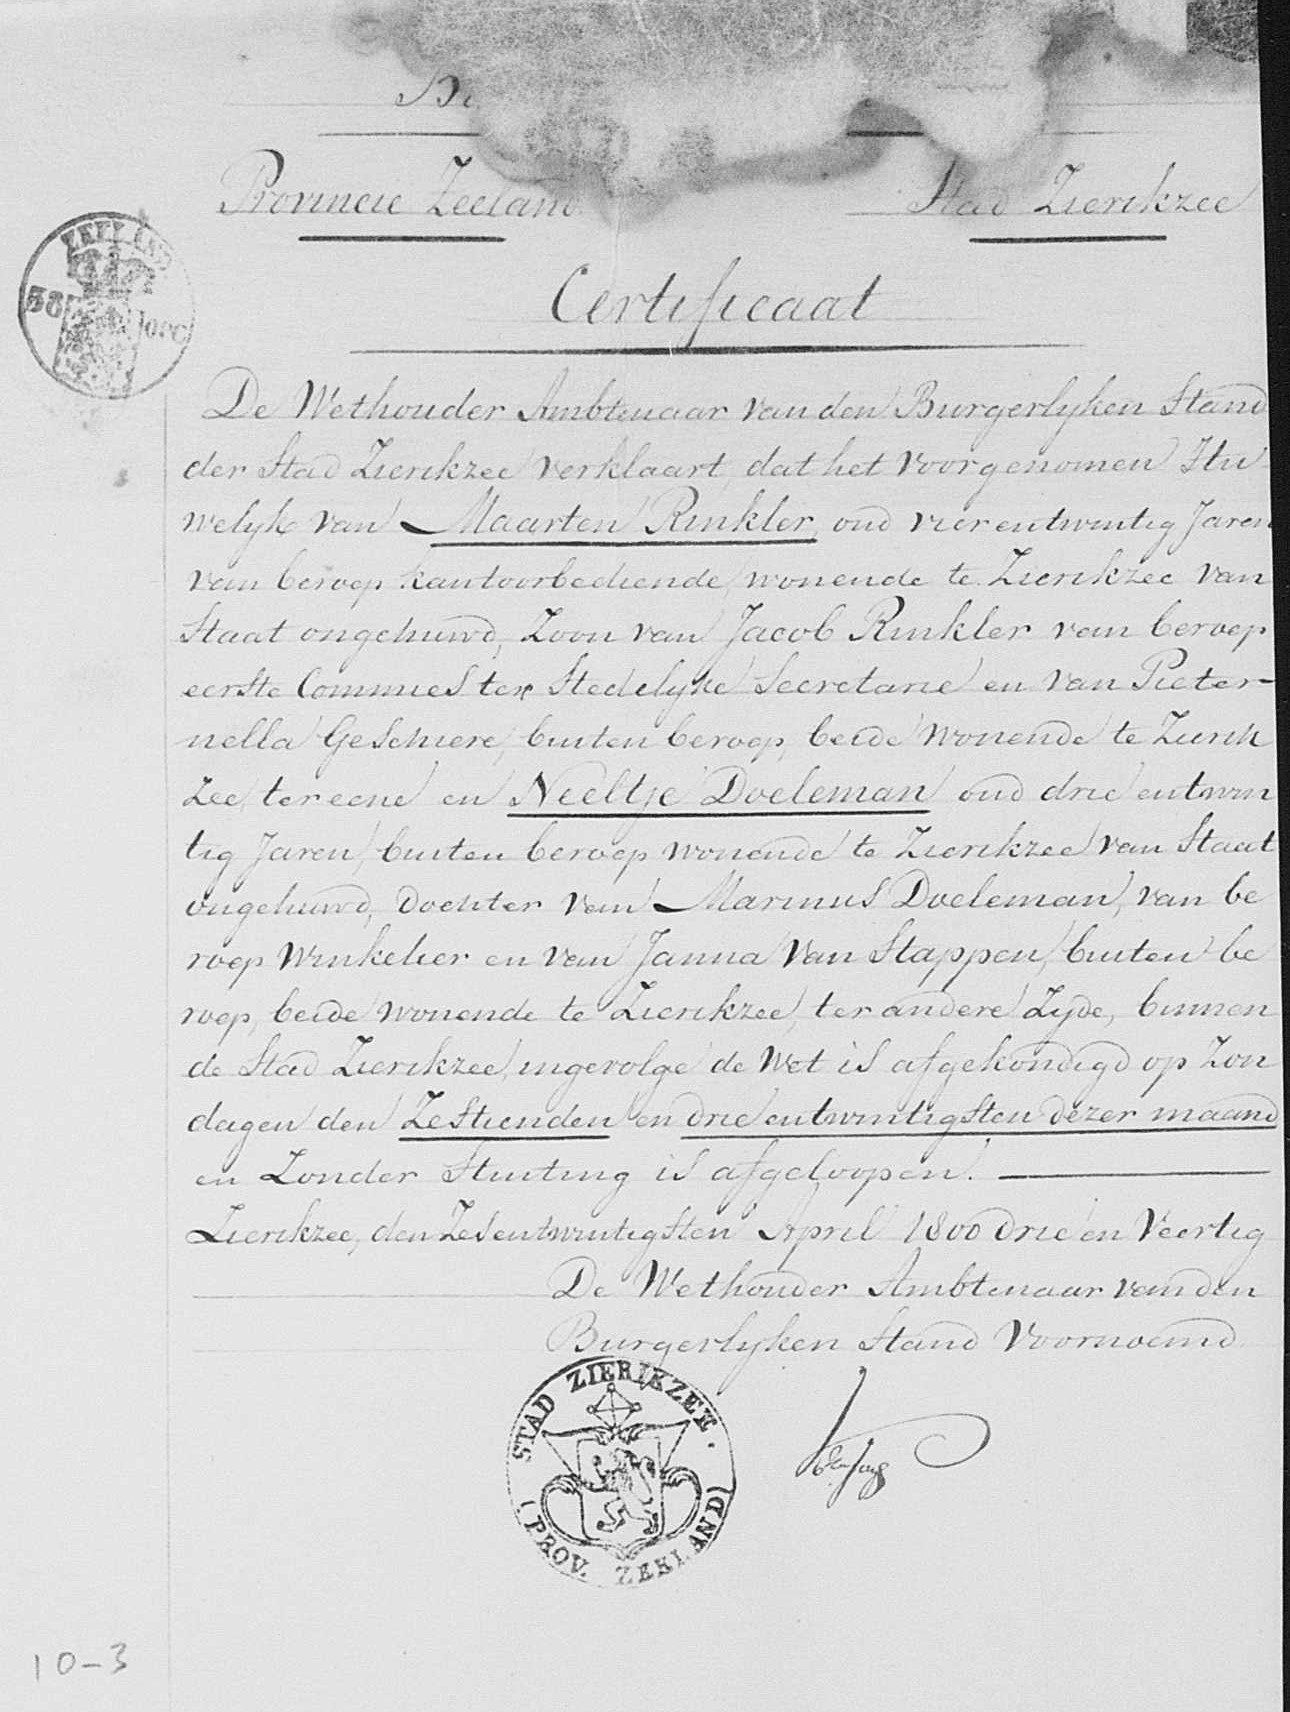 Provincie Zeeland
Stad Zierikzee
ZEELAND
38
opC
Certificaat
De Wethouder Ambtenaar van den Burgerlyken Stand
der Stad Zierikzee verklaart, dat het voorgenomen Hu-
welyk van Maarten Rinkler, oud vier entwintig Jaren
van beroep kantoorbediende, wonende te Zierikzee van
Staat ongehuwd, Zoon van Jacob Rinkler van beroep
eerste Commies ter Stedelyke Secretarie en van Pieter-
nella Geschiere, buiten beroep, beide wonende te Zierik
zee, ter eene en Neeltje Doeleman oud drie entwin
tig Jaren, buiten beroep wonende te Zierikzee van Staat
ongehuwd, dochter van Marinus Doeleman, van be
roep Winkelier en van Janna van Stappen, buiten be
roep, beide wonende te Zierikzee, ter andere Zyde, binnen
de Stad Zierikzee, ingevolge de Wet is afgekondigd op Zon
dagen den Zestienden en drie entwintigsten dezer maand
en Zonder Stuiting is afgeloopen.
Zierikzee, den Zesentwintigsten April 1800 drie en Veertig
De Wethouder Ambtenaar van den
Burgerlyken Stand Voornoemd
STAD ZIERIKZEE.
(PROV. ZEELAND)
10-3